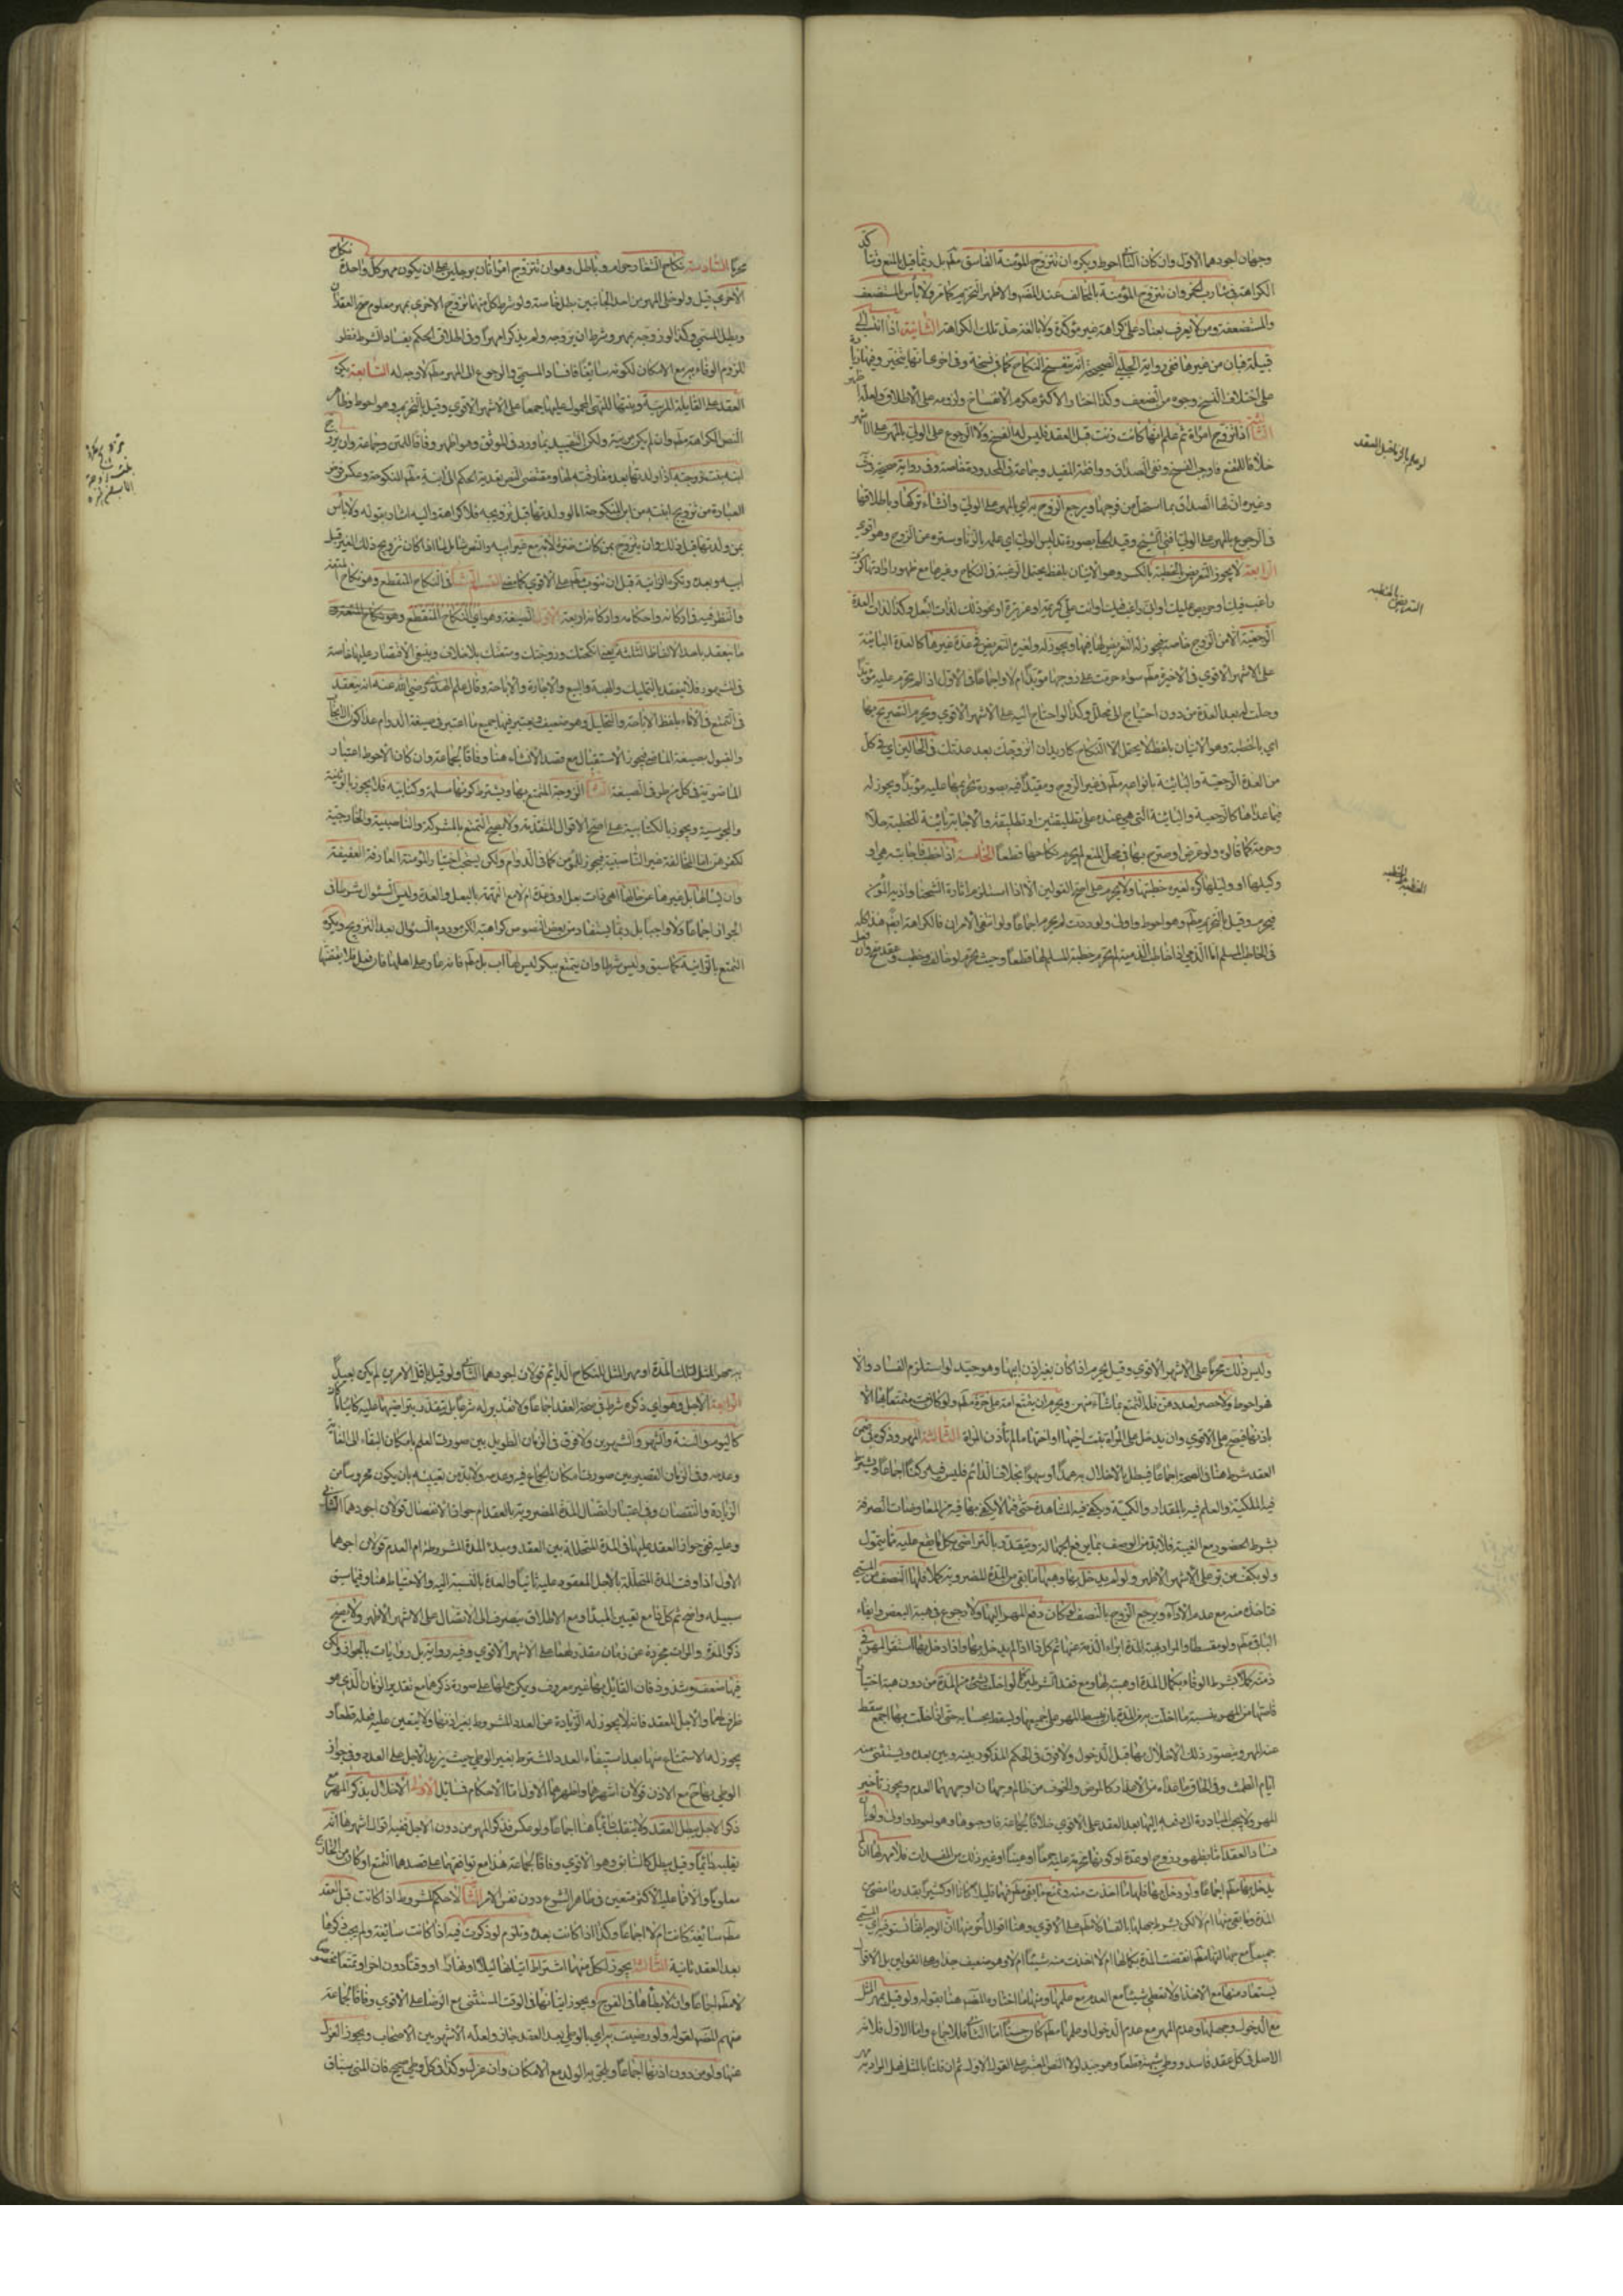 وجهان اجودهما الاول وان كان الثانى احوط ويكره ان تتزوج المؤمنة الفاسق مطلقا بل ربما قيل بالمنع وتتاكد
الكراهة فى شارب الخمر وان تتزوج المؤمنة بالمخالف عند المصنف والاظهر التحريم كما مر ولا باس بالمستضعف
والمستضعفة ومن لا يعرف بعناد على كراهة غير مؤكدة ولا بالغة حد تلك الكراهة الثانية اذا انتسب الى
قبيلة فبان من غيرها ففى رواية الحلبى الصحيحة انه يفسخ النكاح كما فى نسخة وفى اخرى
على اختلاف النسخ وجوه من الضعف وكذا
الثالثة اذا تزوج امراة ثم علم انها كانت زنت قبل العقد فليس له الفسخ ولا الرجوع على الولى بالمهر على الاشهر
خلافا للمقنع فاوجب الفسخ ونفى الصداق ووافقه المفيد وجماعة فى المحدودة خاصة وفى رواية صحيحة
وغيره ان لها الصداق بما استحل من فرجها ويرجع الزوج به اى بالمهر على الولى وان شاء تركها وباطلاقها
فى الرجوع بالمهر على الولى افتى الشيخ وقيد الحلى بصورة تدليس الولى اى علمه بالزنا وستره من الزوج وهو اقوى
الرابعة لا يجوز التعريض بالخطبة بالكسر وهو الاتيان بلفظ يحتمل الرغبة فى النكاح وغيرها مع ظهور ارادتها
راغب فيك او حريص عليك او انى راغب فيك وانت على كريمة او عزيزة او نحو ذلك لذات البعل وكذا لذات العدة
الرجعية الا من الزوج خاصة فيجوز له التعريض لها فيها ويجوز له ولغيره التعريض فى عدة غيرها كالعدة البائنة
على الاشهر الاقوى فى الاخيرة مطلقا سواء حرمت على زوجها مؤبدا ام لا واجماعا فى الاول اذا لم تحرم عليه مؤبدا
وحلت له بعد العدة من دون احتياج الى محلل وكذا لو احتاج اليه على الاشهر الاقوى ويحرم التصريح بها
اى بالخطبة وهو الاتيان بلفظ لا يحتمل الا النكاح كاريد ان اتزوجك بعد عدتك فى الحالين اى فى كل
من العدة الرجعية والبائنة بانواعه مطلقا فى غير الزوج ومقيدا فيه بصورة تحريمها عليه مؤبدا ويجوز له
فيما عداها كالرجعية والبائنة التى هى عنده على تطليقتين او تطليقة والاجابة تابعة للخطبة حلا
وحرمة كما قالوه ولو عرض او صرح بها فى محل المنع لم يحرم نكاحها قطعا الخامسة اذا خطب فاجابته هى او
وكيلها او وليها كره لغيره خطبتها ولا يحرم على اصح القولين الا اذا استلزم اثارة الشحناء واذية المؤمن
فيحرم وقيل بالتحريم مطلقا وهو احوط واولى ولو ردت لم يحرم اجماعا ولو انتفى الامران فالكراهة ايضا هذا كله
فى الخاطب المسلم اما الذمى اذا خاطب الذمية لم تحرم خطبة المسلم لها قطعا وحيث تحرم لو خالف وخطب وعقد صح وان فعل
لو علم بالزنا قبل العقد
التعريض بالخطبة
الخطبة على الخطبة
محرما السادسة نكاح الشغار حرام وباطل وهو ان تتزوج امراتان برجلين على ان يكون مهر كل واحدة نكاح
الاخرى قيل ولو خلى المهر من احد الجانبين بطل خاصة ولو شرط كل منهما تزويج الاخرى بمهر معلوم صح العقدان
وبطل المسمى وكذا لو زوجه بمهر وشرط ان يزوجه ولم يذكرا مهرا وفى اطلاق الحكم بفساد الشرط نظر
للزوم الوفاء به مع الامكان لكونه سائغا فافساد المسمى والرجوع الى المهر مطلقا لا وجه له السابعة يكره
العقد على القابلة المربية وبنتها للنهى المحمول عليها جمعا على الاشهر الاقوى وقيل بالتحريم وهو احوط وظاهر
النص الكراهة مطلقا وان لم يكن مربية ولكن التقييد بها ورد فى الموثق وهو اظهر وفاقا للمتن وجماعة وان يزوج
ابنه بنت زوجته اذا ولدتها بعد مفارقته لها ومقتضى النص تعدية الحكم الى ابنة مطلق المنكوحة
العبارة من تزويج ابنته من ابن المنكوحة اما لو ولدتها قبل تزويجه فلا كراهة واليه اشار بقوله ولا باس
بمن ولدتها قبل ذلك وان يتزوج بمن كانت ضرة لامه مع غير ابيه والنص شامل لما اذا كان تزويج ذلك الغير قبل
ابيه وبعده وتكره الزانية قبل ان تتوب مطلقا على الاقوى كما مضى القسم الثانى فى النكاح المنقطع وهو نكاح المتعة
والنظر فيه فى اركانه واحكامه واركانه اربعة الاول الصيغة وهو اى النكاح المنقطع
ما ينعقد باحد الالفاظ الثلثة بعينها انكحتك وزوجتك ومتعتك بلا خلاف وينبغى الاقتصار عليها خاصة
فى المشهور فلا ينعقد بالتمليك والهبة والبيع والاجارة والاباحة وقال علم الهدى رضى الله عنه انه ينعقد
فى المتمتع فى الاماء بلفظ الاباحة والتحليل وهو ضعيف ويعتبر فيها جميع ما اعتبر فى صيغة الدوام عدا كون الايجاب
والقبول بصيغة الماضى فيجوز الاستقبال مع قصد الانشاء هنا وفاقا لجماعة وان كان الاحوط اعتبار
الماضوية فى كل من طرفى الصيغة الثانى الزوجة المتمتع بها ويشترط كونها مسلمة وكتابية فلا يجوز بالوثنية
والمجوسية ويجوز بالكتابية على اصح الاقوال المتقدمة ولا يصح التمتع بالمشركة والناصبية والخارجية
لكفرهن اما المخالفة غير الناصبية فيجوز للمؤمن كما فى الدوام ولكن يستحب اختيار المؤمنة العارفة العفيفة
وان يسالها بل غيرها عن حالها اهى ذات بعل او فى عدة ام لا مع التهمة بالبعل والعدة وليس السؤال شرطا فى
الجواز اجماعا ولا واجبا بل ربما يستفاد من بعض النصوص كراهته لكن مورده السؤال بعد التزويج ويكره
التمتع بالزانية كما سبق وليس شرطا وان يتمتع ببكر ليس لها اب بل مطلقا فانه عار على اهلها فان فعل فلا يفتضها
وليس ذلك محرما على الاشهر الاقوى وقيل يحرم اذا كان بغير اذن ابيها وهو جيد لو استلزم الفساد والا
فهو احوط ولا حصر لعددهن فله التمتع بما شاء منهن ويحرم ان يتمتع امة على حرة مطلقا ولو كانت متمتعا بها الا
باذنها فيصح على الاقوى وان يدخل على المراة بنت اخيها او اختها ما لم تاذن المراة الثالثة المهر وذكره فى ضمن
العقد شرط هنا فى الصحة اجماعا فيبطل بالاخلال به عمدا او سهوا بخلاف الدائم فليس فيه ركنا اجماعا ويشترط
فيه الملكية والعلم فيه بالمقدار والكمية ويكفى فيه المشاهدة حتى فيما لا يكتفى بها فيه من المعاوضات الصرفة
بشرط الحضور مع الغيبة فلا بد من الوصف بما يرفع الجهالة ويتقدر بالتراضى بكل ما يقع عليه مما يتمول
ولو بكف من بر على الاشهر الاظهر ولو لم يدخل بها ووهبها ما بقى من المدة المضروبة كملا فلها النصف من المسمى
فتاخذه منه مع عدم الاداء ويرجع الزوج بالنصف لو كان دفع المهر اليها ولا رجوع فى هبة البعض وابقاء
الباقى مطلقا ولو مقسطا والمراد بهبة المدة ابراء الذمة عنها ثم كل ذا اذا لم يدخل بها واذا دخل بها استقر المهر فى
ذمته كملا بشرط الوفاء بكمال المدة او هبته لها ومع فقد الشرطين كما لو اخلت بشىء من المدة من دون هبة اختيارا
قاصها من المهر بنسبة ما اخلت به من المدة بان يبسط المهر على جميعها ويسقط بحسابه حتى اذا اخلت بها اجمع سقط
عنه المهر ويتصور ذلك الاخلال بها قبل الدخول ولا فرق فى الحكم المذكور بينه وبين بعده ويستثنى منه
ايام الطمث وفى الحاق ما عداه من الاعذار كالمرض والخوف من ظالم وجهان اوجههما العدم ويجوز تاخير
المهر ولا يجب المبادرة الى دفعه اليها بعد العقد على الاقوى خلافا لجماعة فاوجبوها وهو احوط واولى ولو بان
فساد العقد اما بظهور زوج او عدة او كونها محرمة عليه جمعا او عينا او غير ذلك من المفسدات فلا مهر لها ان لم
يدخل بها مطلقا اجماعا ولو دخل بها فلها ما اخذت منه وتمنع ما بقى مطلقا فيهما قليلا كانا او كثيرا بقدر ما مضى من
المدة وما بقى منها ام لا لكن بشرط جهلها بالفساد لا مطلقا على الاقوى وهنا اقوال اخر منها ان الوجه انها تستوفيه اى المسمى
جميعا مع جهالتها مطلقا انقضت المدة بكمالها ام لا اخذت منه شيئا ام لا وهو ضعيف جدا وهذا القولين بل الاقوال
يستعاد منها مع الاخذ ولا تعطى شيئا مع العدم مع علمها ومنها ما اختاره المصنف هنا بقوله ولو قيل بمهر المثل
مع الدخول وجهلها وعدم المهر مع عدم الدخول او علمها مطلقا كان حسنا اما الثانى فللاجماع واما الاول فلانه
الاصل فى كل عقد فاسد ووطى شبهة قطعا وهو جيد لولا النص المعتبر على القول الاول ثم ان قلنا بالمثل فهل المراد به
مهر المثل لتلك المدة او مهر المثل للنكاح الدائم قولان اجودهما الثانى ولو قيل باقل الامرين لم يكن بعيدا
الرابعة الاجل وهو اى ذكره شرط فى صحة العقد اجماعا ولا تقدير له شرعا بل يتقدر بتراضيهما عليه كائنا ما كان
كاليوم والسنة والشهر والشهرين ولا فرق فى الزمان الطويل بين صورتى العلم بامكان البقاء الى الغاية
وعدمه وفى الزمان القصير بين صورتى امكان الجماع فيه وعدمه ولا بد من تعيينه بان يكون محروسا من
الزيادة والنقصان وفى اعتبار اتصال المدة المضروبة بالعقد ام جواز الانفصال قولان اجودهما الثانى
وعليه ففى جواز العقد عليها فى المدة المتخللة بين العقد ومبدء المدة المشروطة ام العدم قولان اجودهما
الاول اذا وفت المدة المتخللة بالاجل المعقود عليه ثانيا والعدة بالنسبة اليه والاحتياط هنا وفيما سبق
سبيله واضح ثم كل ذا مع تعيين المبدا ومع الاطلاق ينصرف الى الاتصال على الاشهر الاظهر ولا يصح
ذكر المرة والمرات مجردة عن زمان مقدر لهما على الاشهر الاقوى وفيه رواية بل روايات بالجواز ولكن
فيها ضعف وشذوذ فان القائل بها غير معروف ويمكن حملها على صورة ذكرها مع تقدير الزمان الذى هو
ظرف لهما والاجل للعقد فانه لا يجوز له الزيادة عن العدد المشروط بغير اذنها ولا يتعين عليه فعله قطعا و
يجوز له الاستمتاع منها بعد استيفاء العدد المشترط بغير الوطى حيث يزيد الاجل على العدد وفى جواز
الوطى بها ح مع الاذن قولان اشهرهما واظهرهما الاول اما الاحكام فمسائل الاولى الاخلال بذكر المهر مع
ذكر الاجل يبطل العقد ولا ينقلب دائما هنا اجماعا ولو عكس فذكر المهر من دون الاجل ففيه اقوال اشهرها انه
ينقلب دائما وقيل يبطل كالسابق وهو الاقوى وفاقا لجماعة هذا مع تواقعهما على قصدهما المتمتع او كان من الخارج
معلوما والا فما عليه الاكثر متعين فى ظاهر الشرع دون نفس الامر الثانى لا حكم للشروط اذا كانت قبل العقد
مطلقا سائغة كانت ام لا اجماعا وكذا اذا كانت بعده وتلزم لو ذكرت فيه اذا كانت سائغة ولم يجب ذكرها
بعد العقد ثانية الثالثة يجوز لكل منهما اشتراط اتيانها ليلا او نهارا او وقتا دون اخر او تمتعا مخصوصا
لا مطلقا اجماعا وان لا يطاها فى الفرج ويجوز اتيانها فى الوقت المستثنى مع الرضا على الاقوى وفاقا لجماعة
منهم المصنف لقوله ولو رضيت به اى بالوطى بعد العقد جاز ولعله الاشهر بين الاصحاب ويجوز العزل
عنها ولو من دون اذنها اجماعا ويلحق به الولد مع الامكان وان عزل وكذا فى كل وطى صحيح فان المنى سباق